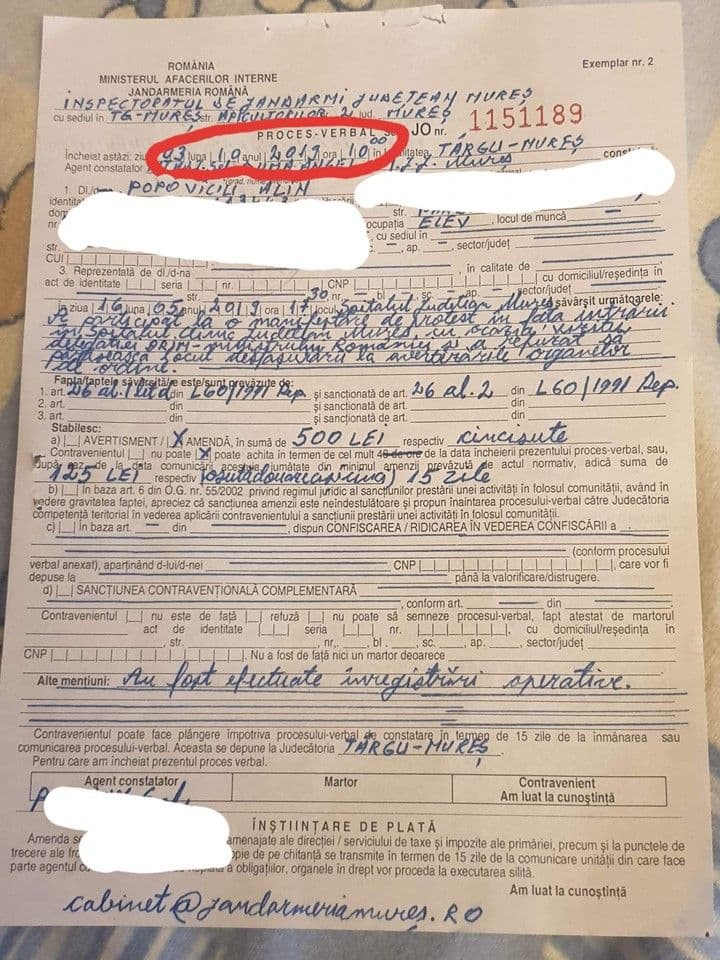 Exemplar nr. 2
ROMÂNIA
MINISTERUL AFACERILOR INTERNE
JANDARMERIA ROMÂNĂ
INSPECTORATUL DE JANDARMI JUDEȚEAN MUREȘ
cu sediul în TG-MUREȘ str. APICULTORILOR 2 jud. MUREȘ
PROCES-VERBAL JO nr. 1151189
Încheiat astăzi: ziua 03 luna 10 anul 2019 ora 10 00 în localitatea TÂRGU-MUREȘ
Agent constatator I.J.J. Mureș
1. Dl./ POPOVICIU ALIN
str.
nr. ocupația ELEV, locul de muncă
, cu sediul în
str. , ap. , sector/județ
CUI
3. Reprezentată de dl/d-na , în calitate de
act de identitate seria nr. CNP cu domiciliul/reședința în
str. nr. bl. sc. ap. sector/județ
În ziua 16 05 anul 2019 ora 17 30 locul Spitalul Județean Mureș săvârșit următoarele:
A participat la o manifestare de protest în fața intrării
în Spitalul Clinic Județean Mureș cu ocazia vizitei
delegației prim-ministrului României și a refuzat să
părăsească locul desfășurării la avertizările organelor
de ordine.
Fapta/faptele săvârșită/e este/sunt prevăzute de:
1. art. 26 al. 1 lit. d din L60/1991 Rep. și sancționată de art. 26 al. 2 din L 60/1991 Rep.
2. art. din și sancționată de art. din
3. art. din și sancționată de art. din
Stabilesc:
a) AVERTISMENT / X AMENDĂ, în sumă de 500 LEI respectiv cincisute
Contravenientul nu poate X poate achita în termen de cel mult 48 de ore de la data încheierii prezentului proces-verbal, sau,
după caz, de la data comunicării acestuia jumătate din minimul amenzii prevăzută de actul normativ, adică suma de
125 LEI respectiv (osutădouăzecișicinci) 15 zile
b) În baza art. 6 din O.G. nr. 55/2002 privind regimul juridic al sancțiunilor prestării unei activități în folosul comunității, având în
vedere gravitatea faptei, apreciez că sancțiunea amenzii este neîndestulătoare și propun înaintarea procesului-verbal către Judecătoria
competentă teritorial în vederea aplicării contravenientului a sancțiunii prestării unei activități în folosul comunității.
c) În baza art. din , dispun CONFISCAREA / RIDICAREA ÎN VEDEREA CONFISCĂRII a
(conform procesului
verbal anexat), aparținând d-lui/d-nei CNP , care vor fi
depuse la până la valorificare/distrugere.
d) SANCȚIUNEA CONTRAVENȚIONALĂ COMPLEMENTARĂ
, conform art. din
Contravenientul nu este de față refuză nu poate să semneze procesul-verbal, fapt atestat de martorul
act de identitate seria nr. , cu domiciliul/reședința în
, str. , nr. , bl. , sc. , ap. , sector/județ
CNP . Nu a fost de față nici un martor deoarece
Alte mențiuni: Au fost efectuate înregistrări operative.
Contravenientul poate face plângere împotriva procesului-verbal de constatare în termen de 15 zile de la înmânarea sau
comunicarea procesului-verbal. Aceasta se depune la Judecătoria TÂRGU-MUREȘ
Pentru care am încheiat prezentul proces verbal.
Agent constatator
Martor
Contravenient
Am luat la cunoștință
ÎNȘTIINȚARE DE PLATĂ
Amenda se amenajate ale direcției / serviciului de taxe și impozite ale primăriei, precum și la punctele de
trecere ale copie de pe chitanță se transmite în termen de 15 zile de la comunicare unității din care face
parte agentul a obligațiilor, organele în drept vor proceda la executarea silită.
Am luat la cunoștință
cabinet@jandarmeriamureș.RO